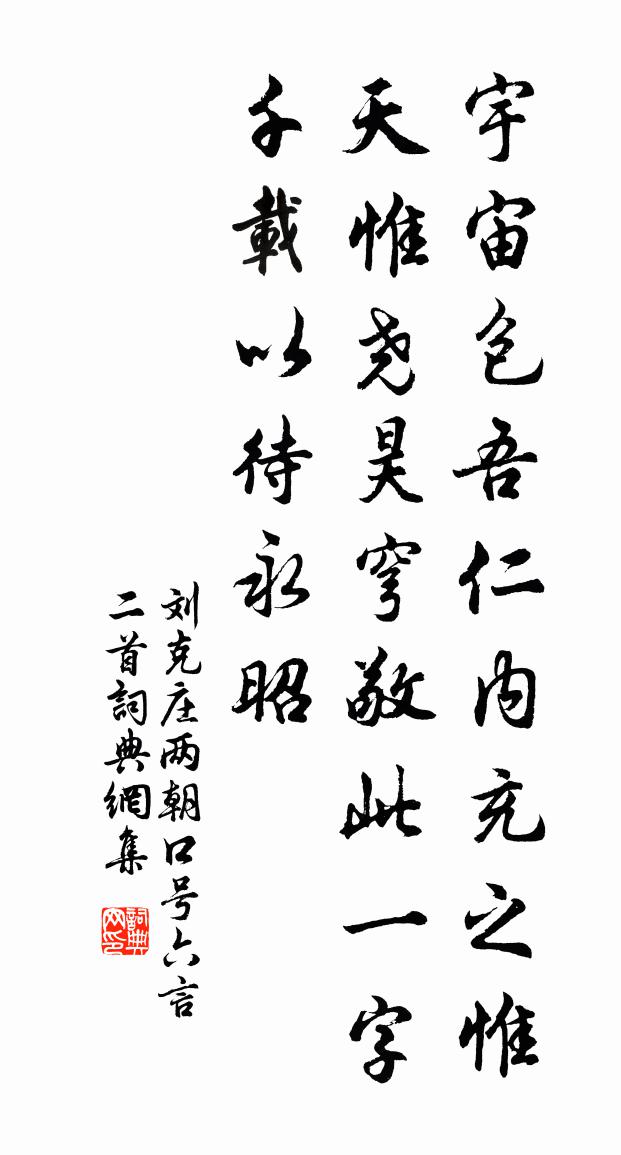 宇宙包吾仁内充之惟
天惟尧昊穹敬此一字
千載以待永昭
刘克庄两朝口号六言
二首詞典網集
詞典
网印